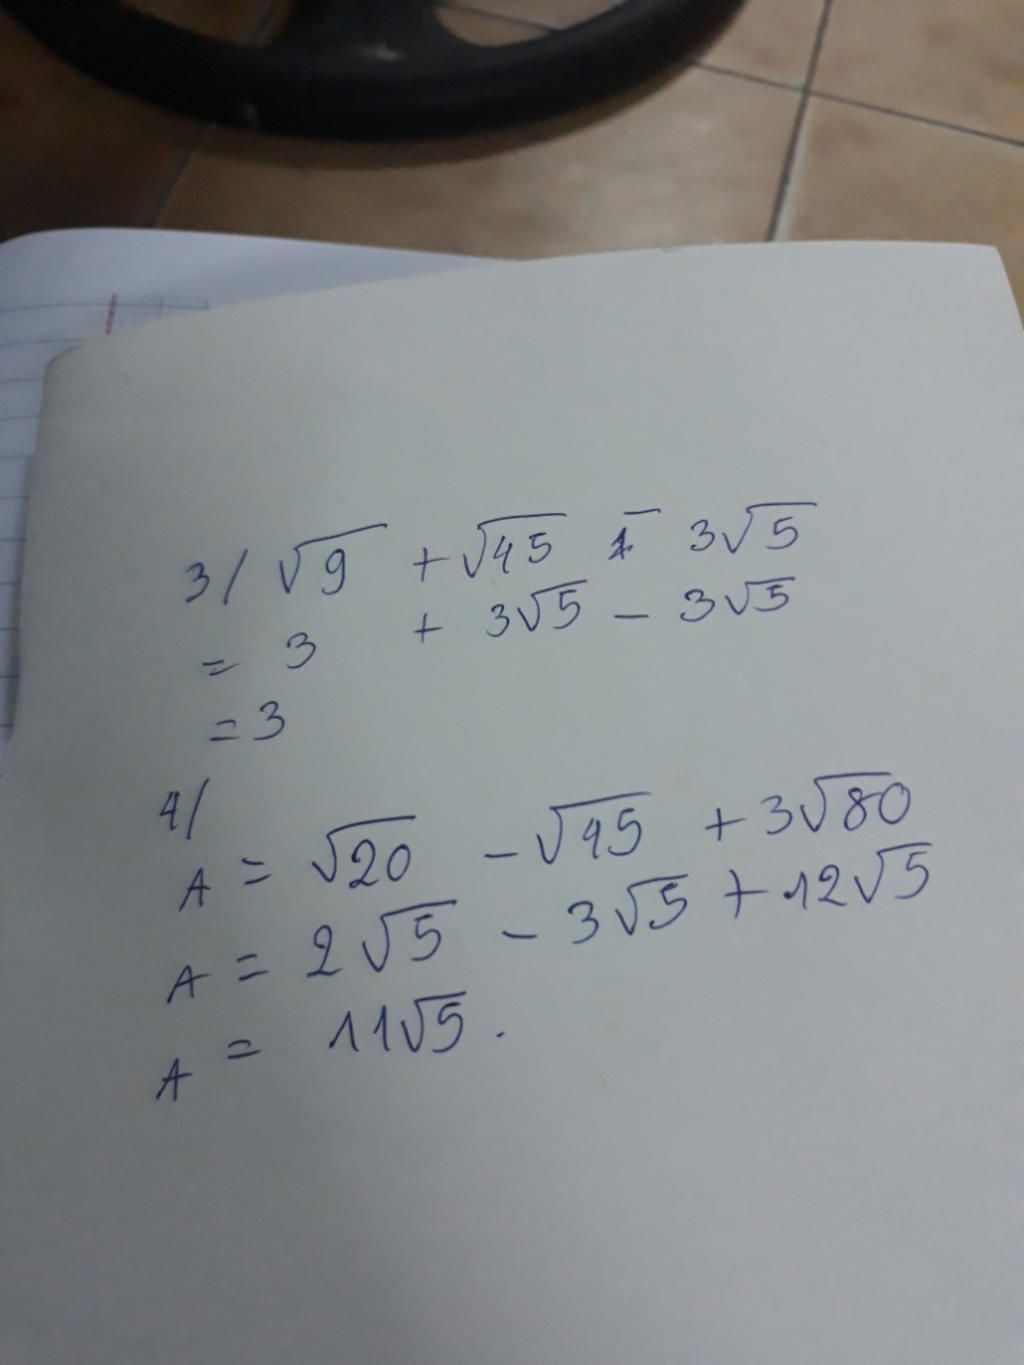 3/ √9 + √45 - 3√5
= 3 + 3√5 - 3√5
= 3
4/
A = √20 - √45 + 3√80
A = 2√5 - 3√5 + 12√5
A = 11√5.